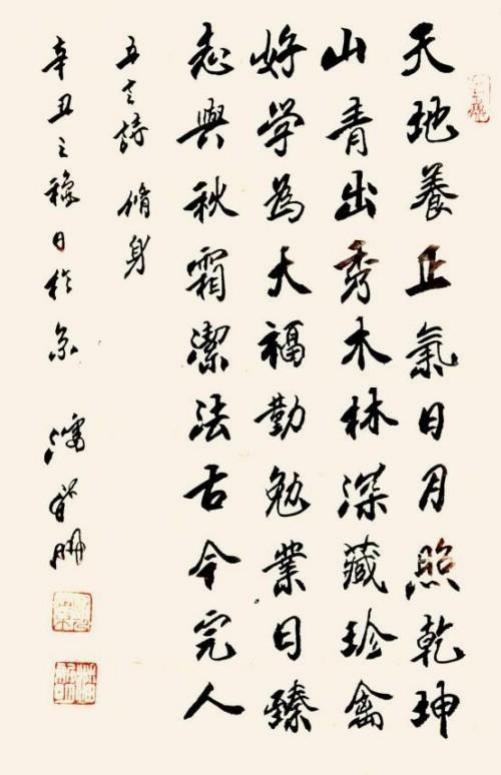 天地養正氣日月照乾坤
山青出秀木林深藏珍禽
好学為大福勤勉業日臻
志與秋霜潔法古今完人
五言詩 脩身
辛丑之穐日於京 潘